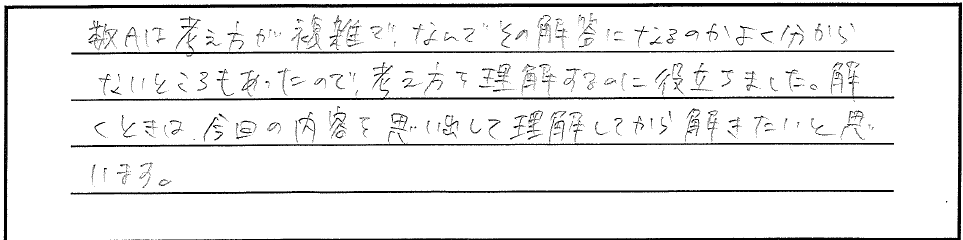 数Aは考え方が複雑で、なんでその解答になるのかよく分から
ないところもあったので、考え方を理解するのに役立ちました。解
くときは、今回の内容を思い出して理解してから解きたいと思
います。